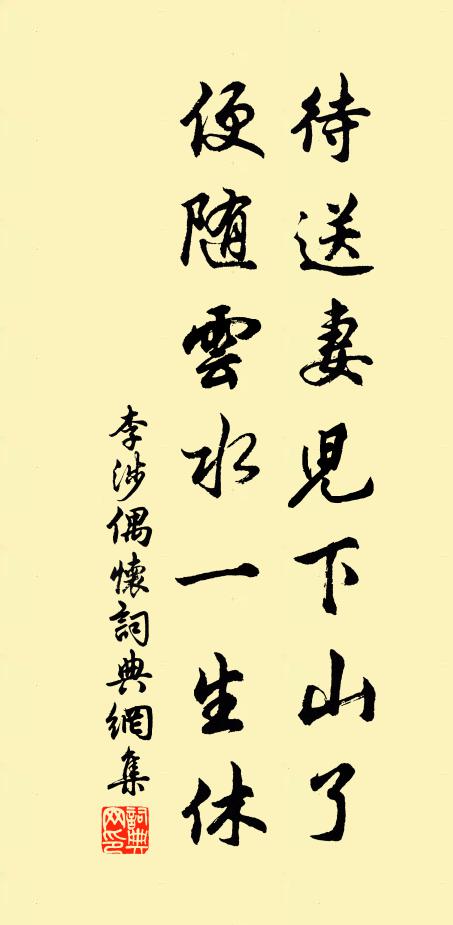 待送妻児下山了
便随雲水一生休
李涉偶懷詞典網集
詞典网印